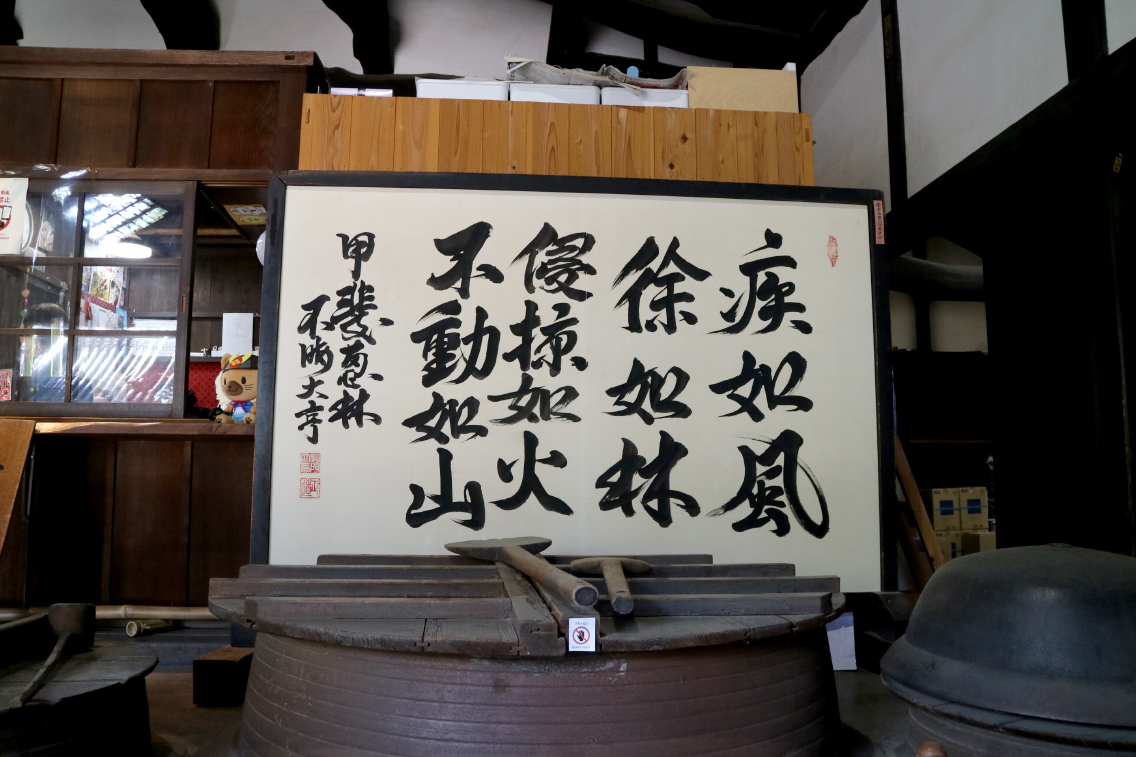 疾如風
徐如林
侵掠如火
不動如山
甲斐
林
不
大亭
禁止